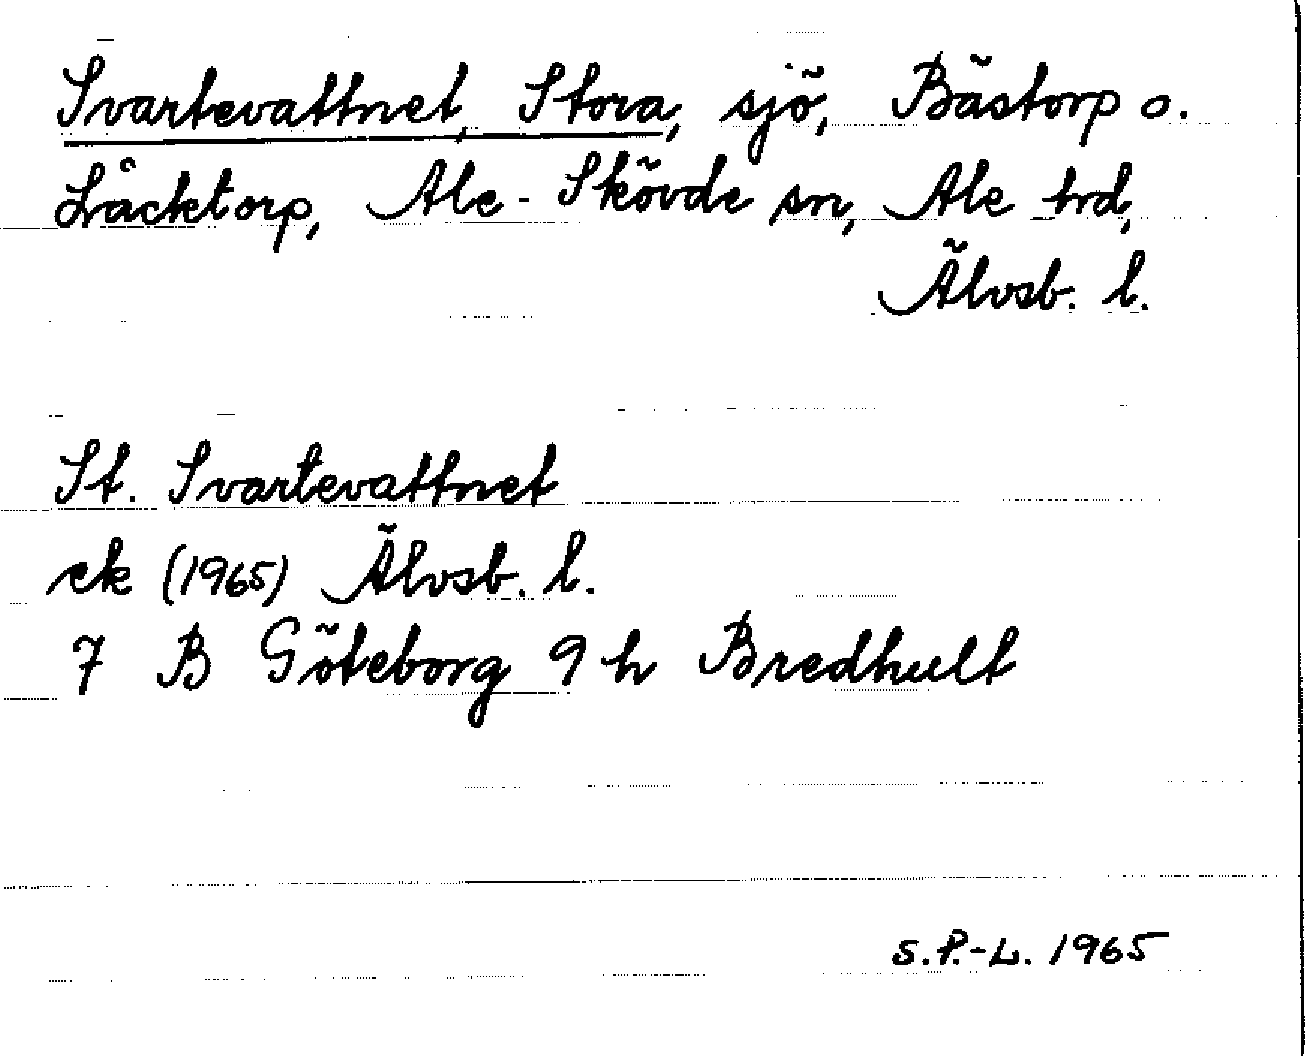 Svartevattnet, Stora, sjö, Bästorp o.
Låcktorp, Ale-Skövde sn, Ale hrd,
Älvsb. l.
St. Svartevattnet
ek (1965) Älvsb. l.
7 B Göteborg 9 h Bredhult
S.P.-L. 1965